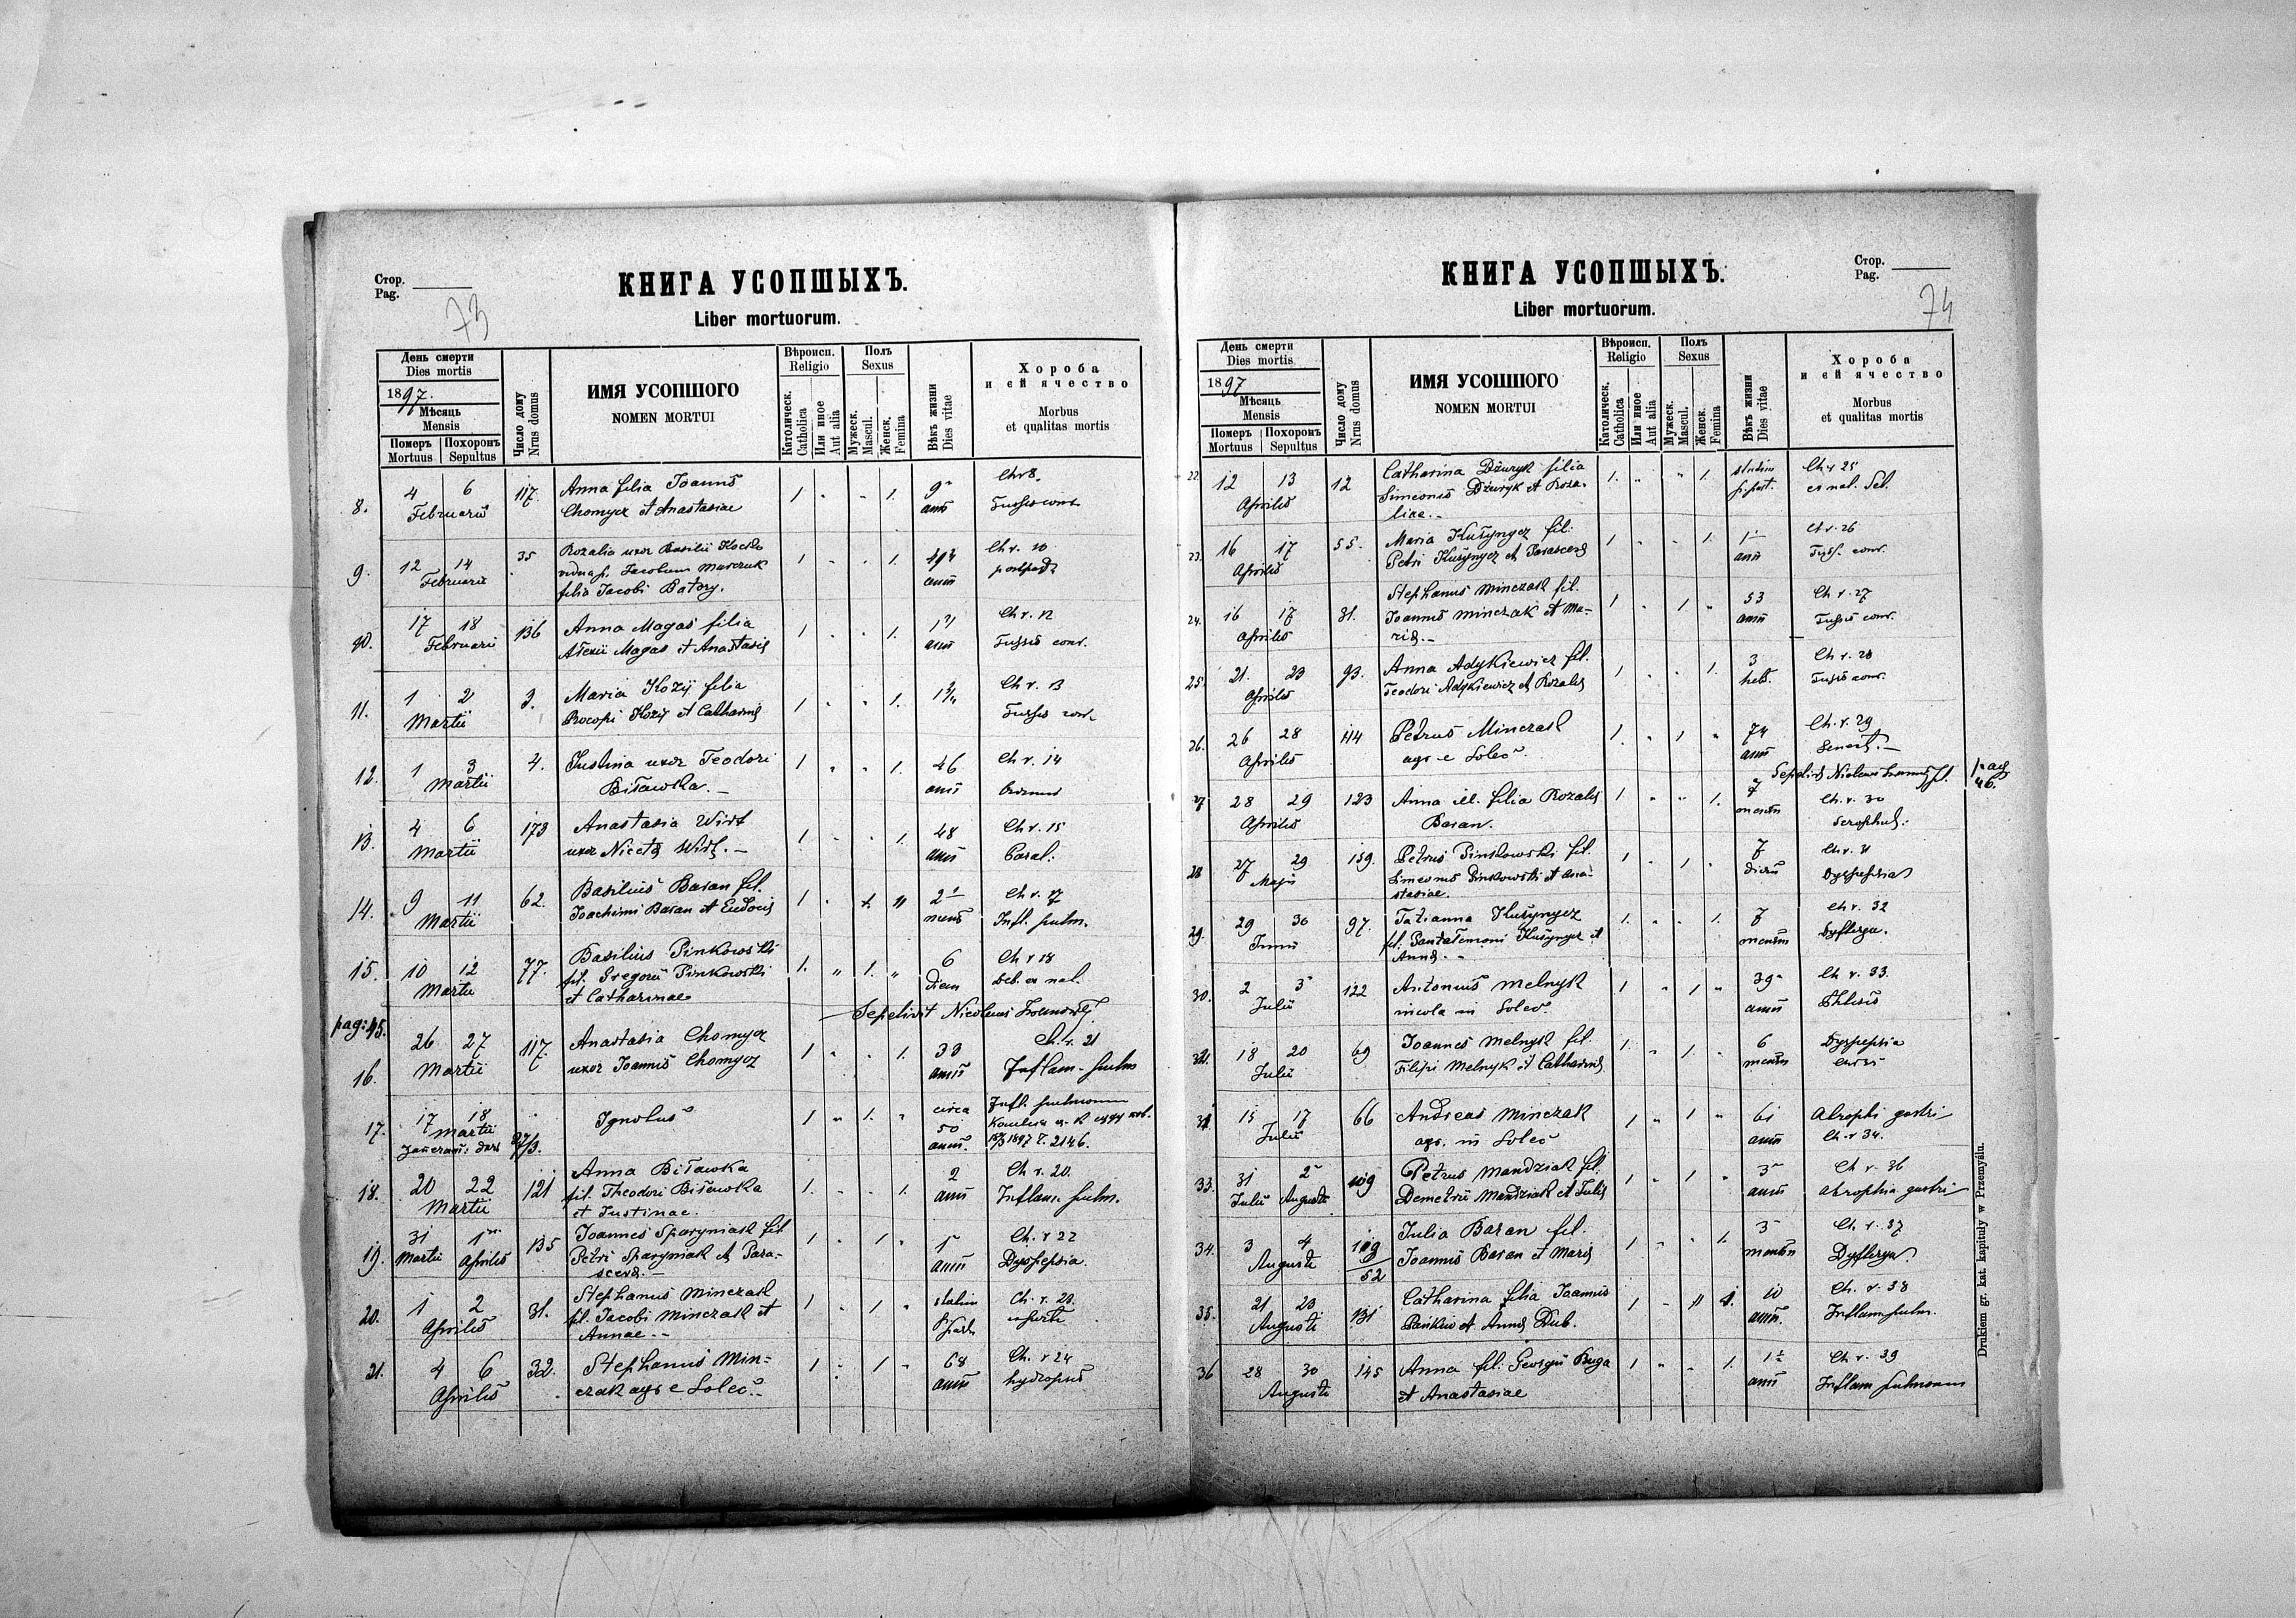 Стор.
Pag.
73
КНИГА УСОПШЫХЪ.
Liber mortuorum.
День смерти
Dies mortis
1897.
Мѣсяць
Mensis
Померъ Похоронъ
Mortuus Sepultus
Число дому
Nrus domus
ИМЯ УСОПШОГО
NOMEN MORTUI
Вѣроисп.
Religio
Католическ.
Catholica
Или иное
Aut alia
Полъ
Sexus
Мужеск.
Mascul.
Женск.
Femina
Вѣкъ жизни
Dies vitae
Хороба
и ей ячество
Morbus
et qualitas mortis
8. 4 6 117. Anna filia Joannis 1 " " 1. 9 Ch r 8.
Februarii Chomycz et Anastasiae anni Tussis conv.
9. 12 14 35 Rozalia uxor Basilii 1 " " 1. Ch r. 10
Februarii vidua p. Jacobum Marczuk anni
filia Jacobi Batory.
10. 17 18 136 Anna Magas filia 1 " " 1. Ch r. 12
Februarii Alexii Magas et Anastasiae anni Tussis conv.
11. 1 2 3. Maria Kozij filia 1 " " 1. Ch r. 13
Martii Procopi Kozij et Catharinae Tussis conv.
12. 1 3 4. Justina uxor Teodori 1 " " 1. 46 Ch r. 14
Martii Biławka. anni
13. 4 6 173 Anastasia Wirt 1 " " 1. 48 Ch r. 15
Martii uxor Nicetae Wirt. anni
14. 9 11 62. Basilius Baran fil. 1 " 1. " 2 Ch r. 17
Martii Joachimi Baran et Eudociae mens Infl. pulm.
15. 10 12 77. Basilius Pinkowski 1. " 1. " 6 Ch r 18
Martii fil. Gregorii Pinkowski dieru deb. ex nat.
et Catharinae
pag: 45. Sepelivit Nicolaus
16. 26 27 117. Anastasia Chomycz 1 " " 1. 33 Ch. r. 21
Martii uxor Joannis Chomycz annis Inflam. pulm
17. 17 18 Ignotus 1 " 1. " circa Infl. pulmonum
Martii 50
annis. 1897 2146.
18. 20 22 121 Anna Biławka 1. " " 1. 2 Ch r. 20.
Martii fil. Theodori Biławka anni Inflam. pulm.
et Justinae.
19. 31 1 135 Joannes Sparyniak fil 1. " 1. " 1 Ch. r 22
Martii Aprilis Petri Sparyniak et Para- anni Dyspepsia.
scevae.
20. 1 2 31. Stephanus Minczak 1 " 1. " statim Ch. r. 23.
Aprilis fil. Jacobi Minczak et p. part.
Annae.
21. 4 6 32. Stephanus Min- 1 " 1 " 68 Ch. r 24
Aprilis czak agr e Solec. annis hydropsis
Стор.
Pag.
74
КНИГА УСОПШЫХЪ.
Liber mortuorum.
День смерти
Dies mortis
1897
Мѣсяць
Mensis
Померъ Похоронъ
Mortuus Sepultus
Число дому
Nrus domus
ИМЯ УСОПШОГО
NOMEN MORTUI
Вѣроисп.
Religio
Католическ.
Catholica
Или иное
Aut alia
Полъ
Sexus
Мужеск.
Mascul.
Женск.
Femina
Вѣкъ жизни
Dies vitae
Хороба
и ей ячество
Morbus
et qualitas mortis
22. 12 13 12 Catharina Dżuryk filia 1. " " 1. statim Ch r 25
Aprilis Simeonis Dżuryk et Roza- p. part. ex nat. deb.
liae.
23. 16 17 55. Maria Kuszyngcz fil. 1 " " 1. 1 Ch r. 26
Aprilis Petri Kuszyngcz et Parascevae anni Tuss. conv.
24. 16 17 31. Stephanus Minczak fil. 1 " 1 " 53 Ch r. 27
Aprilis Joannis Minczak et Ma- anni Tussis conv.
riae.
25. 21. 23 93. Anna Adykiewicz fil. 1 " " 1. 3 Ch r. 28
Aprilis Teodori Adykiewicz et Rozaliae heb. Tussis conv.
26. 26 28 114 Petrus Minczak 1. " 1 " 74 Ch. r. 29
Aprilis agr e Solec. anni Senect.
Sepelivit Nicolaus pag 46.
27 28 29 123 Anna ill. filia Rozaliae 1 " " 1. 7 Ch. r. 30
Aprilis Baran. mensiu Scrophul.
28 27 29 159. Petrus Pinkowski fil. 1 " 1 " 7 Ch r. 31
Maji Simeonis Pinkowski et Ana- dieru Dyspepsia
stasiae.
29. 29 30 97. Tatianna Kuszyngcz 1. " " 1. 7 Ch r. 32
Junii fil. Pantalemoni Kuszyngcz et mensiu Dyfterya.
Annae.
30. 2 3 122 Antonius Melnyk 1 " 1 " 39 Ch r. 33.
Julii incola in Solec. annis Phtisis
31. 18 20 69 Joannes Melnyk fil. 1. " 1. " 6 Dyspepsia
Julii Filipi Melnyk et Catharinae mensiu
32. 15 17 66 Andreas Minczak 1 " 1 " 61 Atrophi gastri
Julii agr. in Solec anni Ch. r 34.
33. 31 2 109 Petrus Mandziak fil. 1 " 1 " 3 Ch r. 36
Julii Augusti Demetrii Mandziak et Juliae anni atrophia gastri
34. 3 4 109/52 Julia Baran fil. 1 " " 1. 3 Ch. r. 37
Augusti Joannis Baran et Mariae mensiu Dyfterya.
35. 21 23 131 Catharina filia Joannis 1 " " 1. 10 Ch. r. 38
Augusti et Annae Dub. annis. Inflam. pulm.
36 28 30 145 Anna fil. Georgii Buga 1 " " 1. 1 Ch r. 39
Augusti et Anastasiae anni Inflam pulmonum
Drukiem gr. kat. kapituły w Przemyślu.